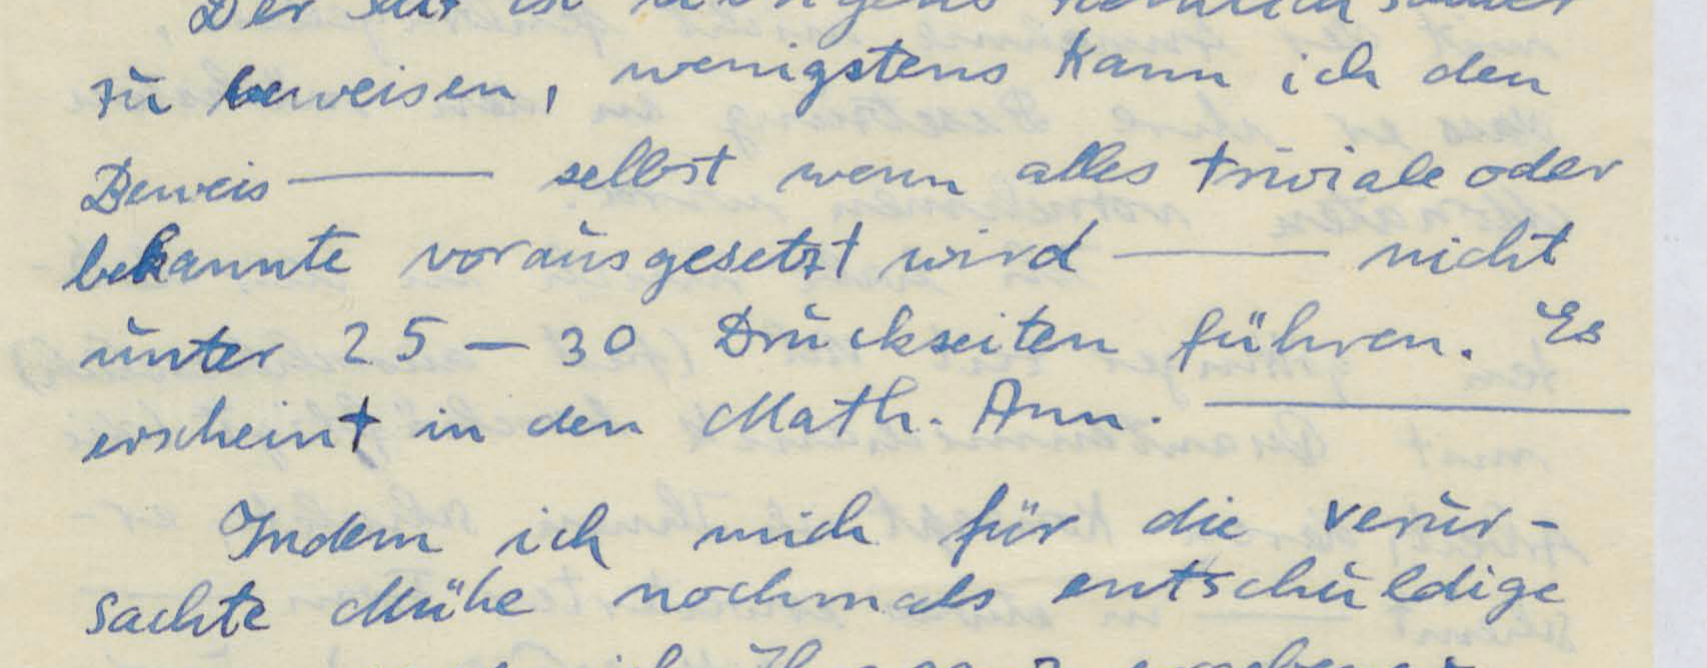 Der Satz ist übrigens ziemlich schwer
zu beweisen, wenigstens kann ich den
Beweis —— selbst wenn alles triviale oder
bekannte vorausgesetzt wird —— nicht
unter 25 — 30 Druckseiten führen. Es
erscheint in den Math. Ann. ——
Indem ich mich für die verur-
sachte Mühe nochmals entschuldige